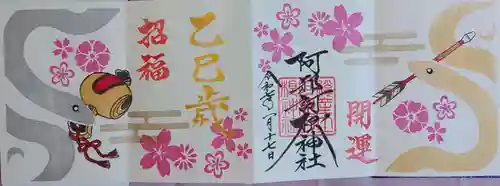 開運
阿邪訶根神社
令和七年一月十七日
乙巳歳
招福